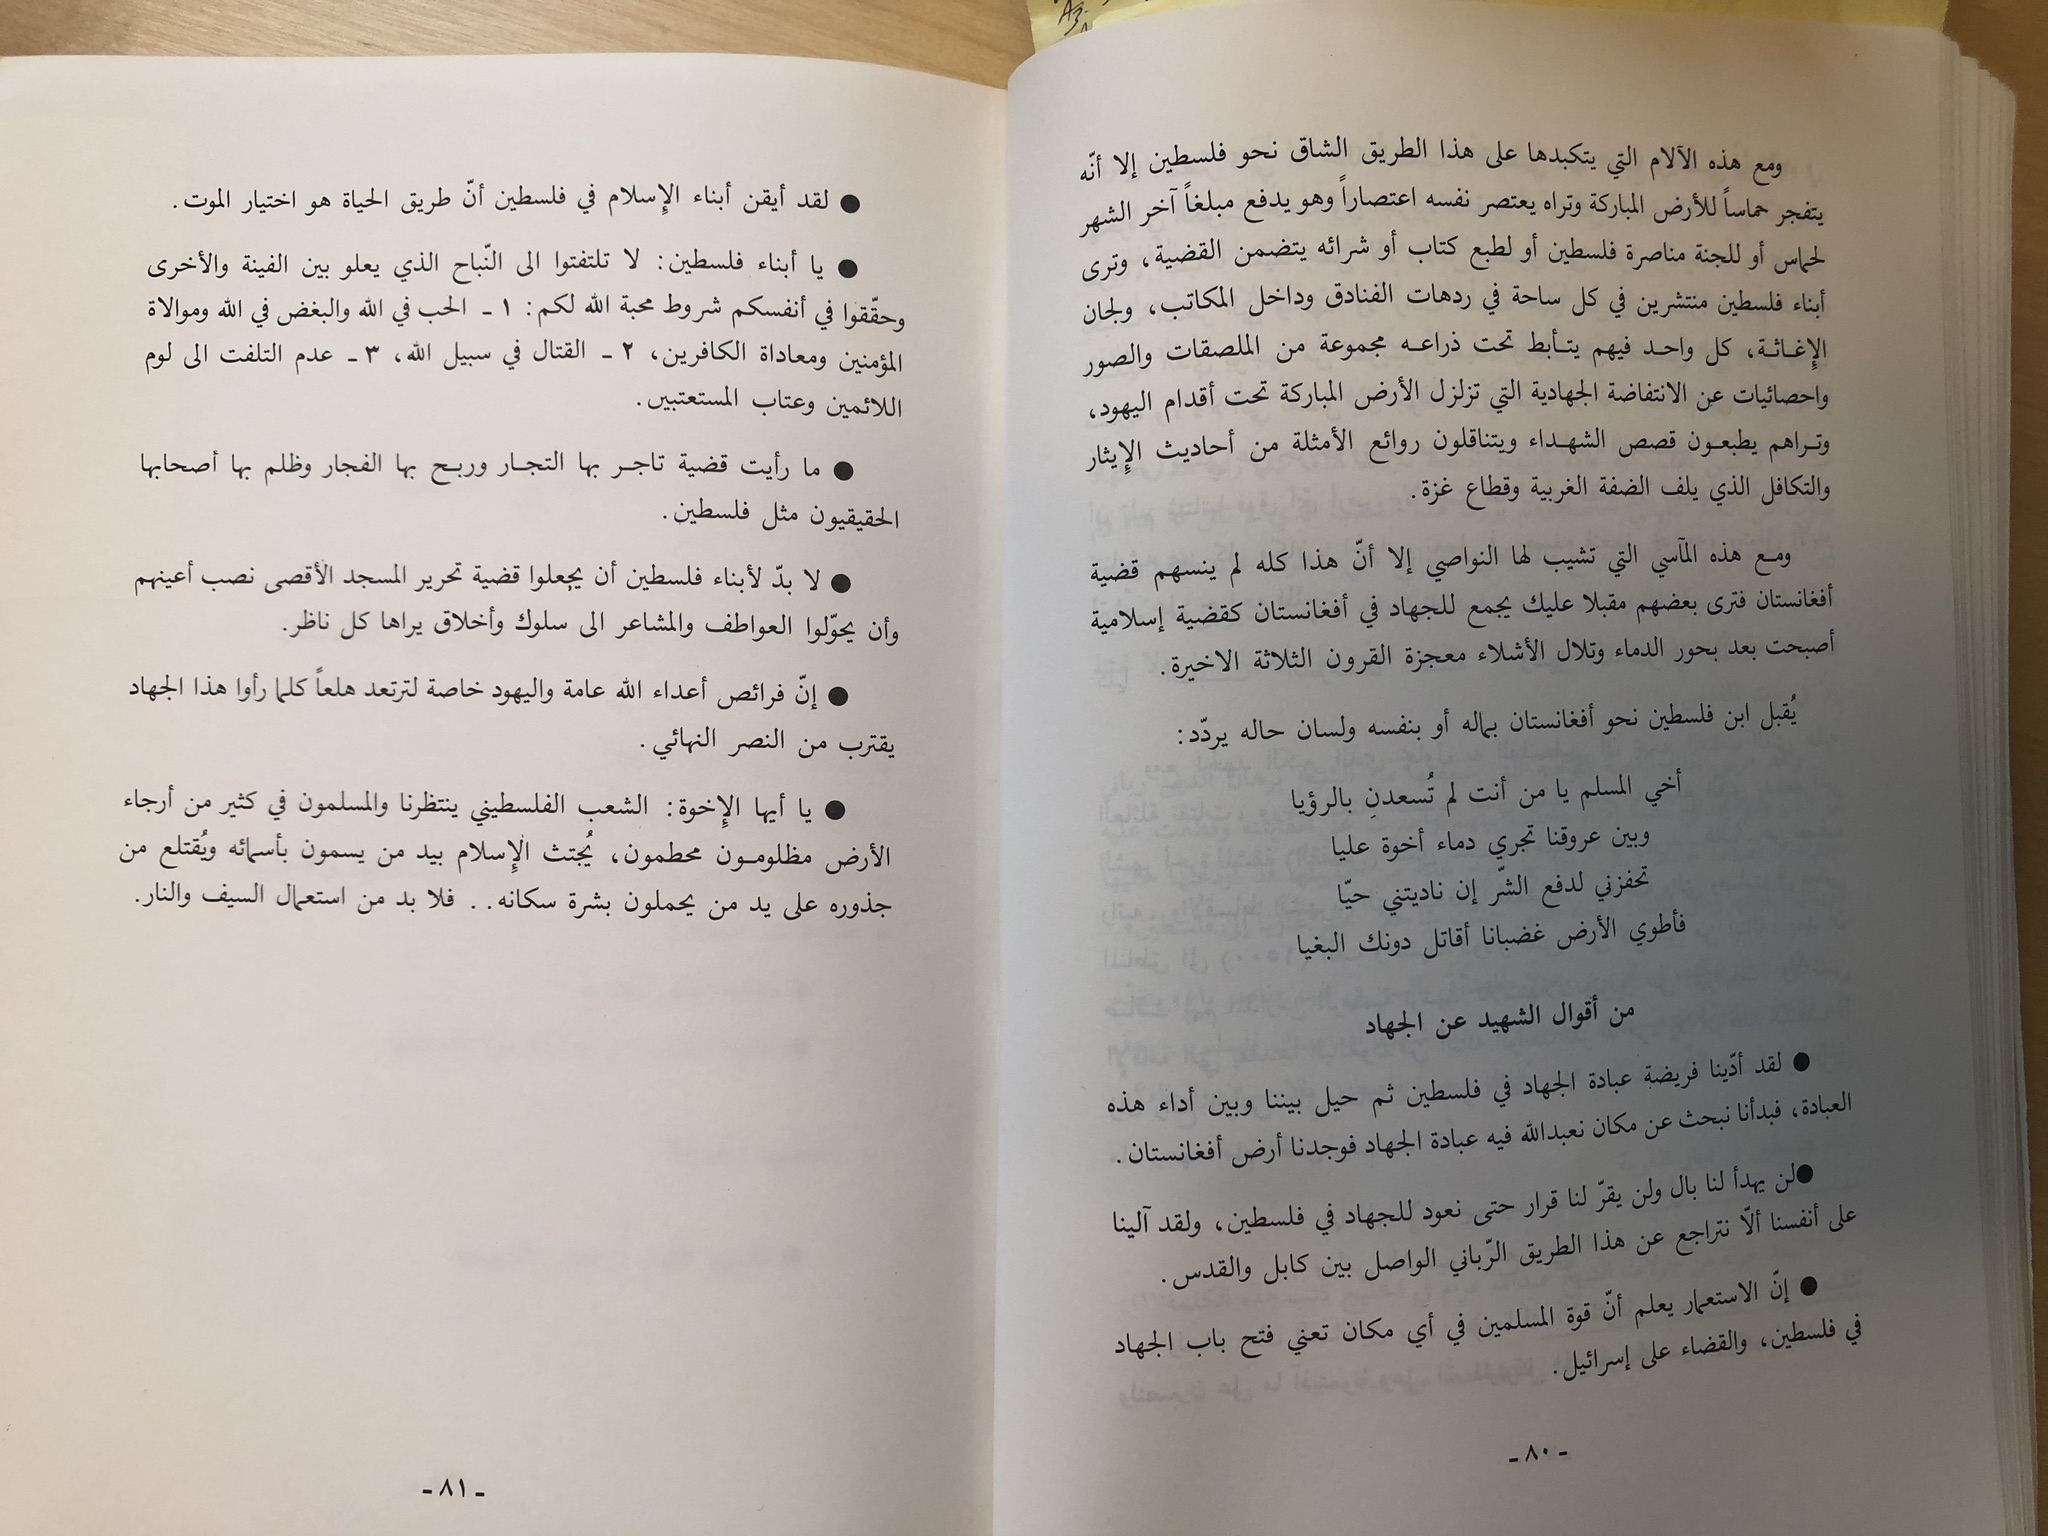 ومع هذه الآلام التي يتكبدها على هذا الطريق الشاق نحو فلسطين إلا أنّه
يتفجر حماساً للأرض المباركة وتراه يعتصر نفسه اعتصاراً وهو يدفع مبلغاً آخر الشهر
لحماس أو للجنة مناصرة فلسطين أو لطبع كتاب أو شرائه يتضمن القضية، وترى
أبناء فلسطين منتشرين في كل ساحة في ردهات الفنادق وداخل المكاتب، ولجان
الإغاثة، كل واحد فيهم يتأبط تحت ذراعه مجموعة من الملصقات والصور
واحصائيات عن الانتفاضة الجهادية التي تزلزل الأرض المباركة تحت أقدام اليهود،
وتراهم يطبعون قصص الشهداء ويتناقلون روائع الأمثلة من أحاديث الإيثار
والتكافل الذي يلف الضفة الغربية وقطاع غزة.
ومع هذه المآسي التي تشيب لها النواصي إلا أنّ هذا كله لم ينسهم قضية
أفغانستان فترى بعضهم مقبلا عليك يجمع للجهاد في أفغانستان كقضية إسلامية
أصبحت بعد بحور الدماء وتلال الأشلاء معجزة القرون الثلاثة الاخيرة.
يُقبل ابن فلسطين نحو أفغانستان بماله أو بنفسه ولسان حاله يردّد:
أخي المسلم يا من أنت لم تُسعدنِ بالرؤيا
وبين عروقنا تجري دماء أخوة عليا
تحفزني لدفع الشرّ إن ناديتني حيّا
فأطوي الأرض غضبانا أقاتل دونك البغيا
من أقوال الشهيد عن الجهاد
● لقد أدّينا فريضة عبادة الجهاد في فلسطين ثم حيل بيننا وبين أداء هذه
العبادة، فبدأنا نبحث عن مكان نعبدالله فيه عبادة الجهاد فوجدنا أرض أفغانستان.
●لن يهدأ لنا بال ولن يقرّ لنا قرار حتى نعود للجهاد في فلسطين، ولقد آلينا
على أنفسنا ألاّ نتراجع عن هذا الطريق الرّباني الواصل بين كابل والقدس.
● إنّ الاستعمار يعلم أنّ قوة المسلمين في أي مكان تعني فتح باب الجهاد
في فلسطين، والقضاء على إسرائيل.
- ٨٠ -
● لقد أيقن أبناء الإسلام في فلسطين أنّ طريق الحياة هو اختيار الموت.
● يا أبناء فلسطين: لا تلتفتوا الى النّباح الذي يعلو بين الفينة والأخرى
وحقّقوا في أنفسكم شروط محبة الله لكم: ١ ـ الحب في الله والبغض في الله وموالاة
المؤمنين ومعاداة الكافرين، ٢ ـ القتال في سبيل الله، ٣ ـ عدم التلفت الى لوم
اللائمين وعتاب المستعتبين.
● ما رأيت قضية تاجر بها التجار وربح بها الفجار وظلم بها أصحابها
الحقيقيون مثل فلسطين.
● لا بدّ لأبناء فلسطين أن يجعلوا قضية تحرير المسجد الأقصى نصب أعينهم
وأن يحوّلوا العواطف والمشاعر الى سلوك وأخلاق يراها كل ناظر.
● إنّ فرائص أعداء الله عامة واليهود خاصة لترتعد هلعاً كلما رأوا هذا الجهاد
يقترب من النصر النهائي.
● يا أيها الإخوة: الشعب الفلسطيني ينتظرنا والمسلمون في كثير من أرجاء
الأرض مظلومون محطمون، يُجتث الإسلام بيد من يسمون بأسمائه ويُقتلع من
جذوره على يد من يحملون بشرة سكانه.. فلا بد من استعمال السيف والنار.
- ٨١ -